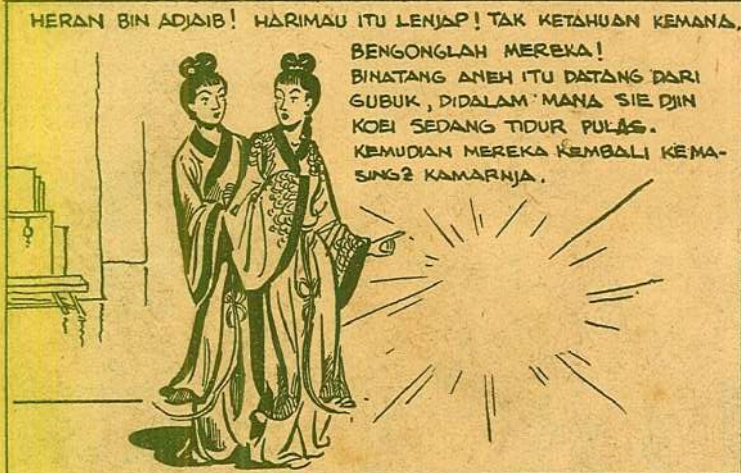 HERAN BIN ADJAIB! HARIMAU ITU LENJAP! TAK KETAHUAN KEMANA,
BENGONGLAH MEREKA!
BINATANG ANEH ITU DATANG DARI
GUBUK, DIDALAM MANA SIE DJIN
KOEI SEDANG TIDUR PULAS.
KEMUDIAN MEREKA KEMBALI KEMA-
SING2 KAMARNJA.